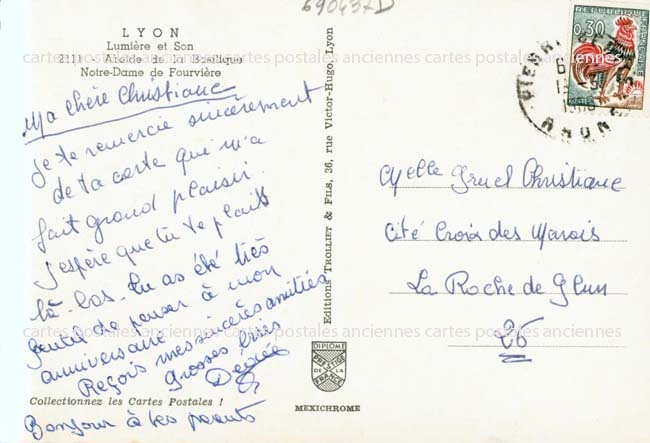 690437D
LYON
Lumière et Son
2111 - Abside de la Basilique
Notre-Dame de Fourvière
Ma chère Christiane
Je te remercie sincèrement
de ta carte qui m'a
fait grand plaisir.
J'espère que tu te plais
là-bas. Tu as été très
gentil de penser à mon
anniversaire
Reçois mes sincères amitiés
Grosses bises
Désirée
Bonjour à tes parents
Collectionnez les Cartes Postales !
Editions TROLLIET & FILS, 36, rue Victor-Hugo, Lyon
DIPLOME
PRESTIGE
DE LA
FRANCE
MEXICHROME
REPUBLIQUE
FRANÇAISE
0,30
POSTES
PIERRE
RHONE
Melle Gruel Christiane
Cité Croix des Marais
La Roche de Glun
26
cartes postales anciennes cartes postales anciennes cartes postales anciennes
cartes postales anciennes cartes postales anciennes cartes postales anciennes